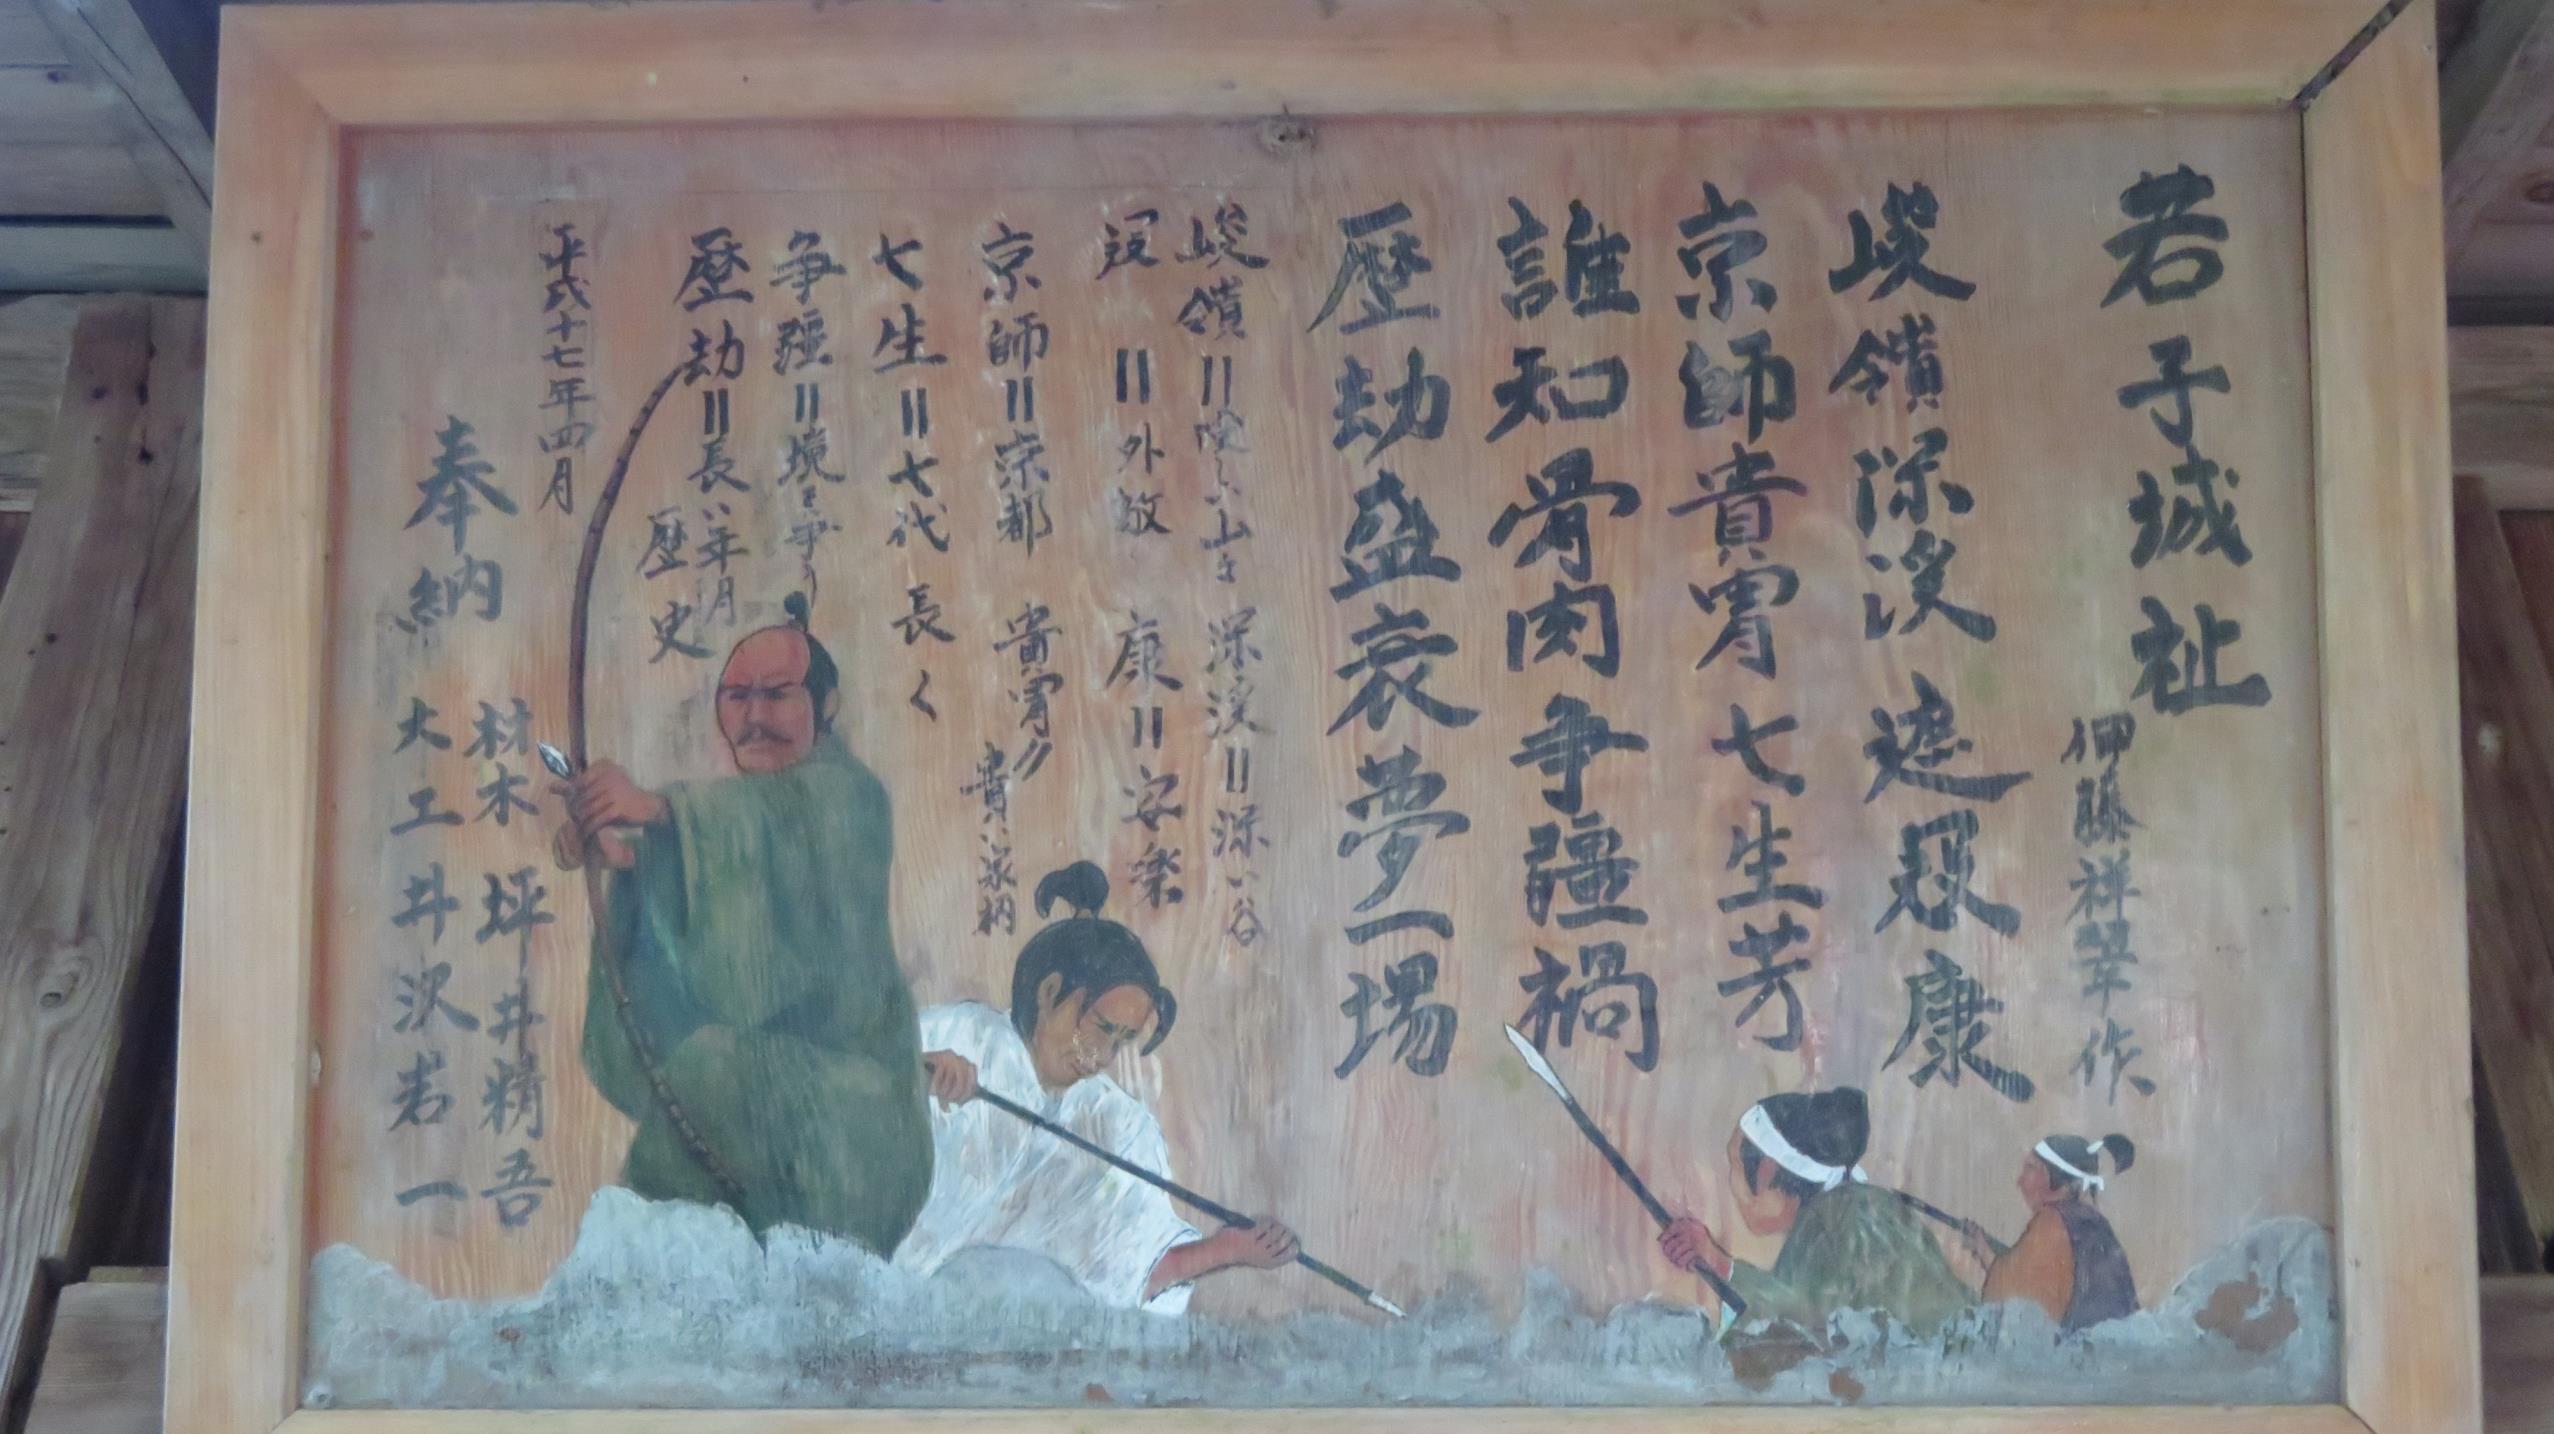 若子城祉
伊藤祥峯作
峻嶺深渓遮叚康
京師貴冑七生芳
誰知骨肉争疆禍
歴劫盛衰夢一場
峻嶺＝陵しい山き 深渓＝深い谷
叚＝外敵 康＝安楽
京師＝京都 貴冑〃貴い家柄
七生＝七代長く
争疆＝境を争う
歴劫＝長い年月
歴史
平成十七年四月
奉納
材木 坪井精吾
大工 井沢岩一